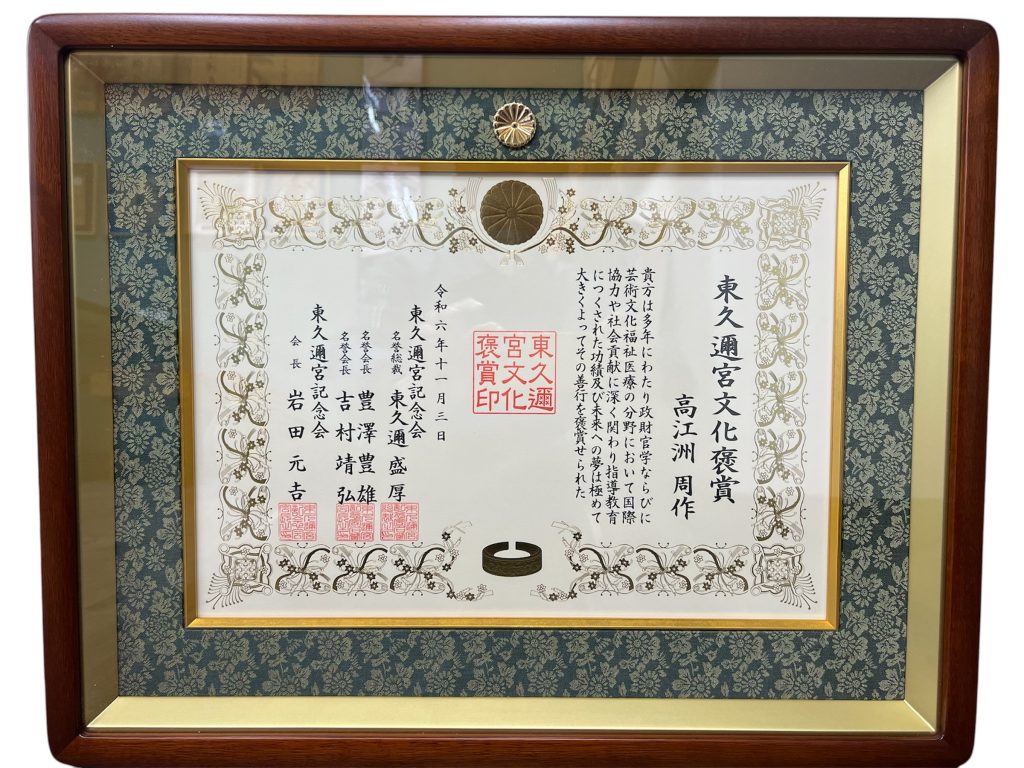 東久邇宮文化褒賞
高江洲 周作
貴方は多年にわたり政財官学ならびに
芸術文化福祉医療の分野において国際
協力や社会貢献に深く関わり指導教育
につくされた功績及び未来への夢は極めて
大きくよってその善行を褒賞せられた
東久邇
宮文化
褒賞印
令和六年十一月三日
東久邇宮記念会
名誉総裁 東久邇盛厚
名誉会長 豊澤豊雄
名誉会長 吉村靖弘
東久邇宮記念会
会長 岩田元吉